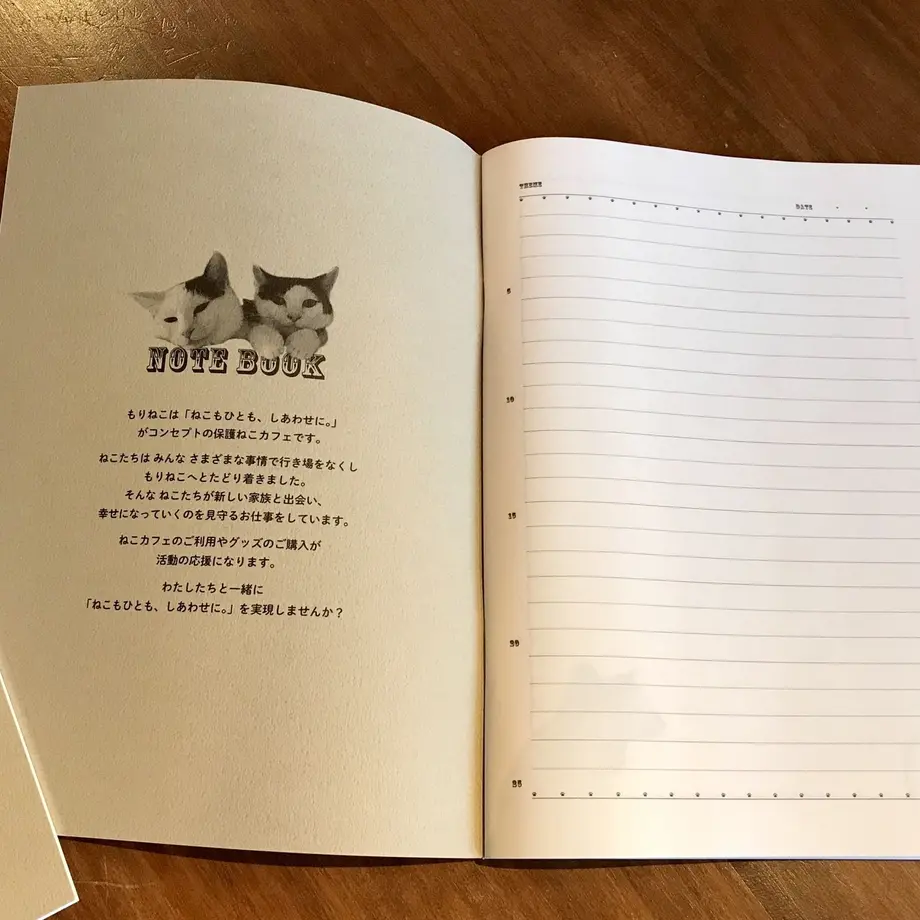 NOTE BOOK
もりねこは「ねこもひとも、しあわせに。」
がコンセプトの保護ねこカフェです。
ねこたちは みんな さまざまな事情で行き場をなくし
もりねこへとたどり着きました。
そんな ねこたちが新しい家族と出会い、
幸せになっていくのを見守るお仕事をしています。
ねこカフェのご利用やグッズのご購入が
活動の応援になります。
わたしたちと一緒に
「ねこもひとも、しあわせに。」を実現しませんか？
THEME
DATE . .
5
10
15
20
25